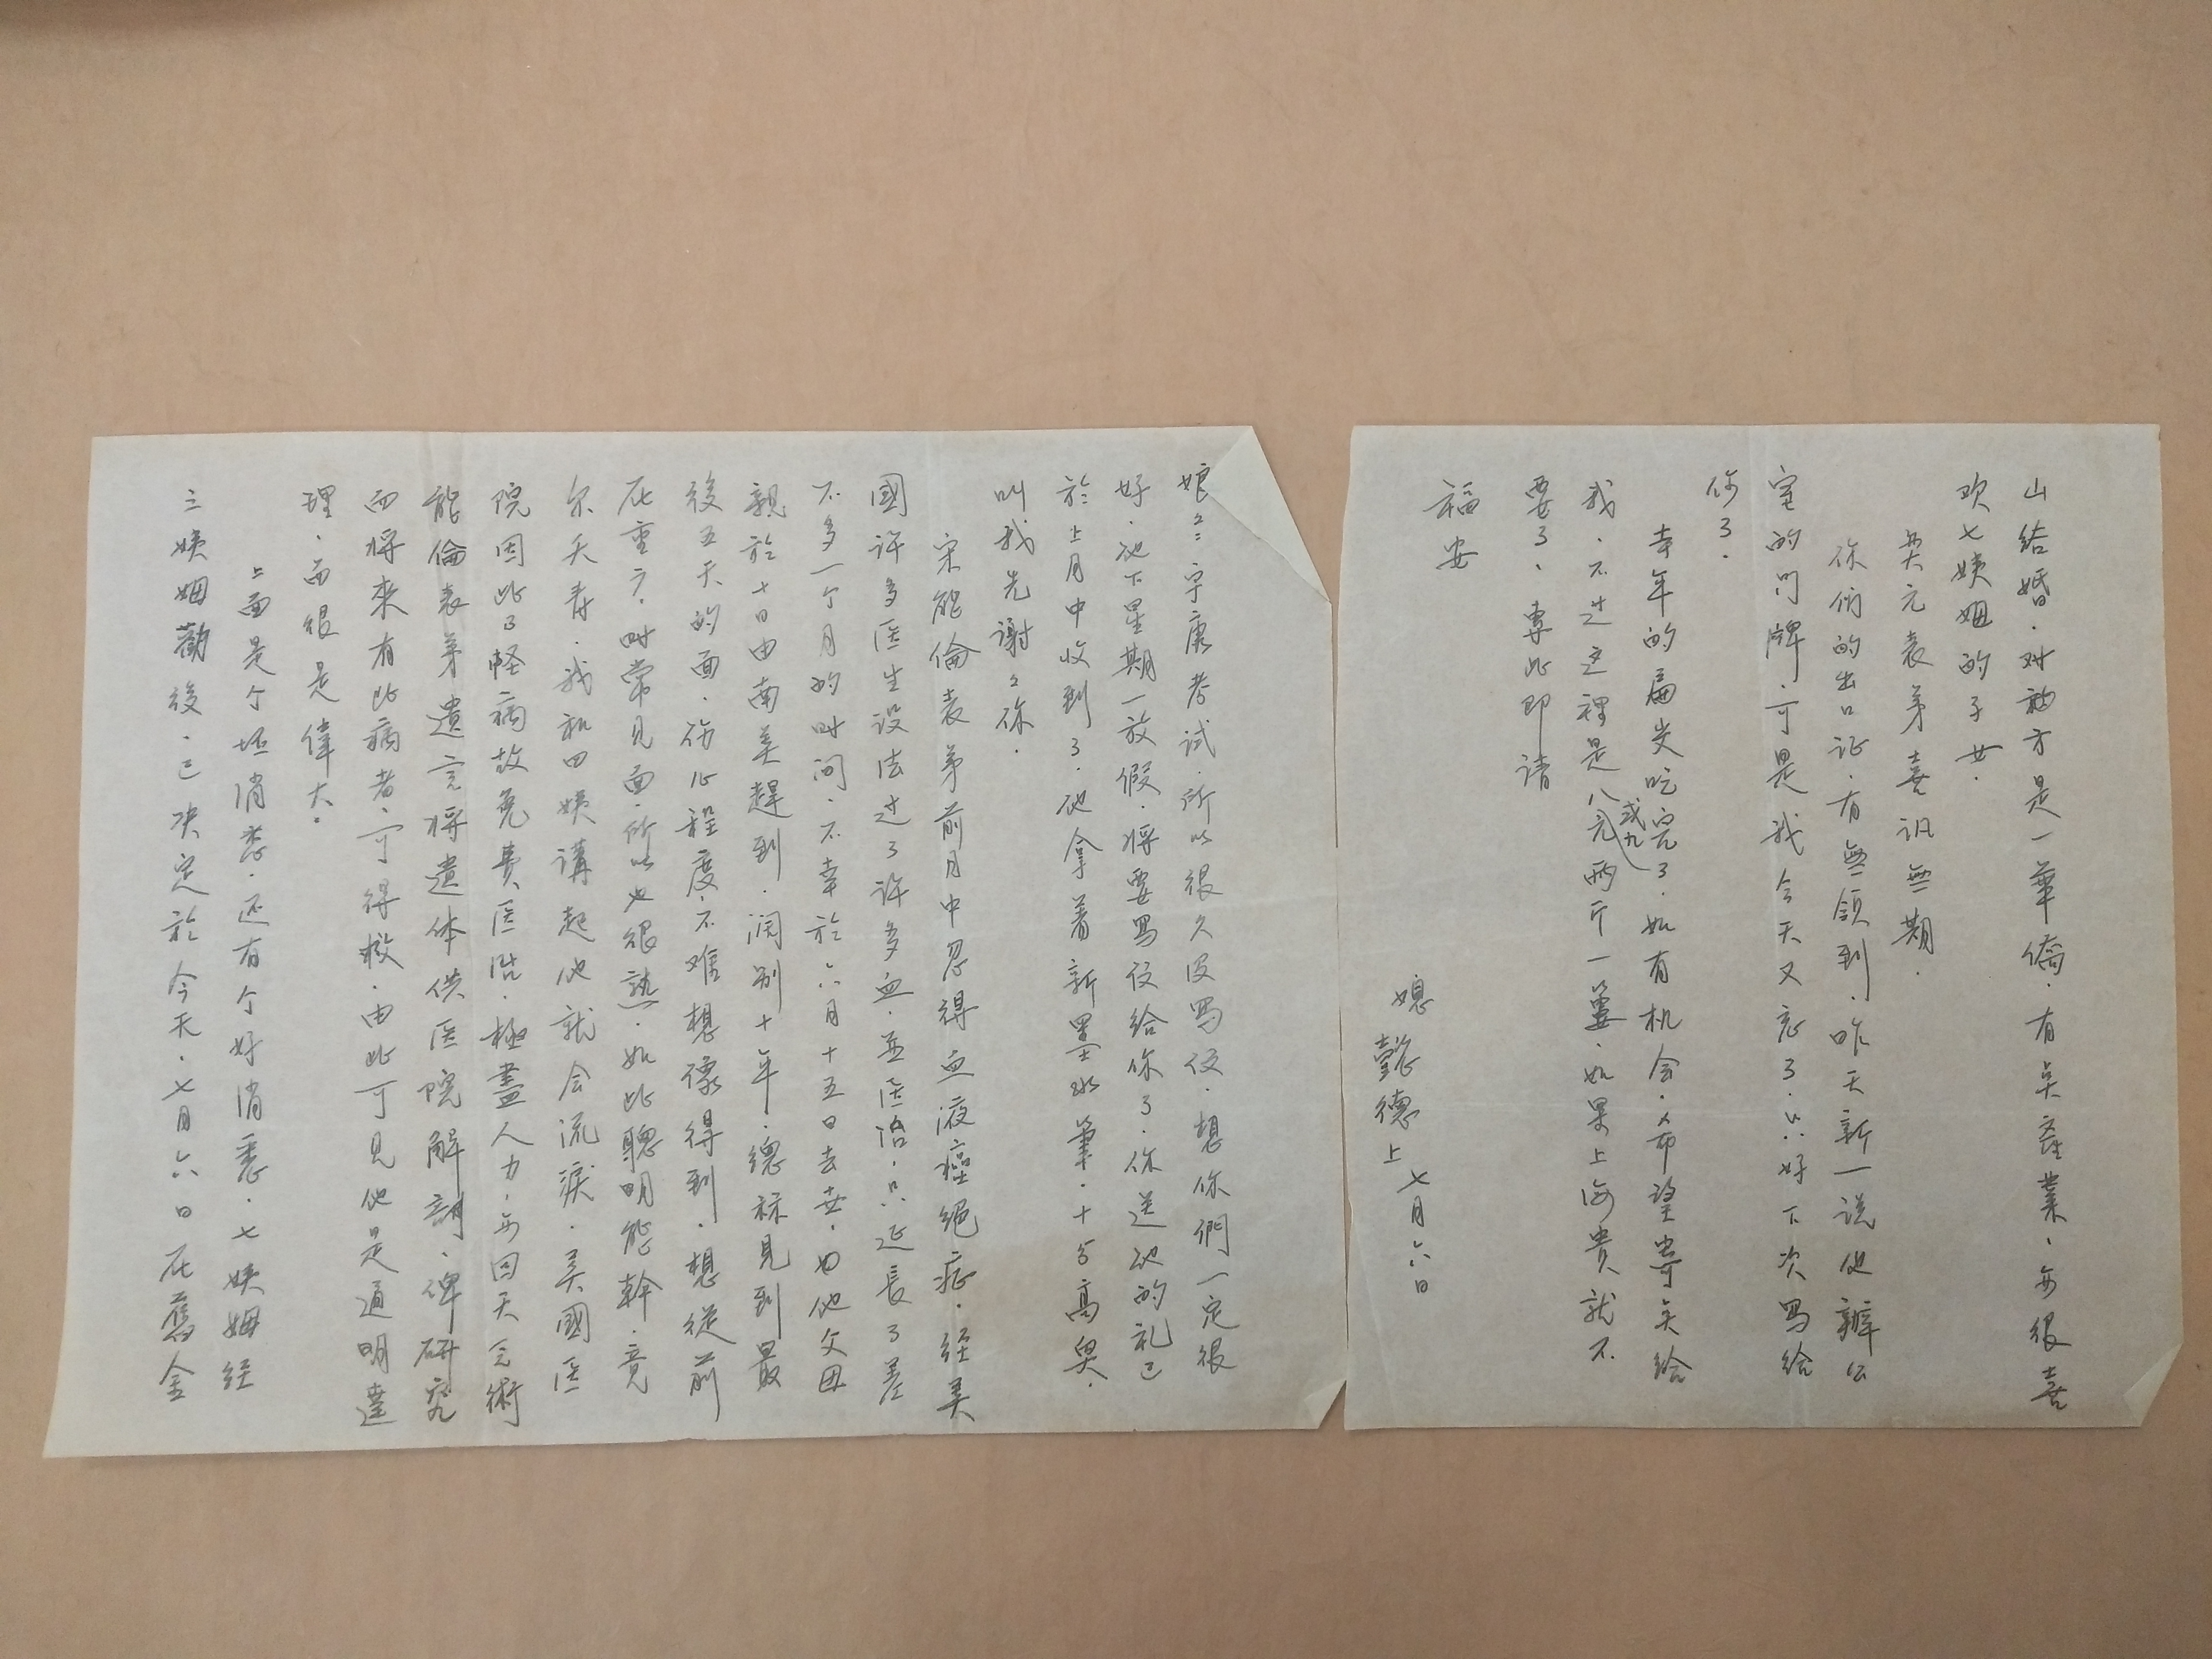 娘〻：宇康考試，所以很久没寫信，想你們一定很
好，他下星期一放假，将要寫信給你了，你送他的礼已
於上月中收到了，他拿着新墨水筆，十分高興，
叫我先謝〻你。
宋能倫表弟前月中忽得血液癌絕症，经美
國許多医生设法过了許多血，並医治，只延長了差
不多一个月的时间，不幸於六月十五日去世，由他父母
親於十日由南美趕到，闊别十年，總祘見到最
後五天的面，伤心程度，不难想像得到，想從前
在重慶，时常見面，所以也很熟，如此聰明能幹，竟
尔夭寿，我和四姨講起他就会流淚，美國医
院因此了怪病故免費医治，極盡人力，無回天之術
能倫表弟遺言将遺体供医院解剖，俾研究
而将來有此病者，可得救，由此可見他是通明達
理，而很是偉大。
上面是个坯消息，还有个好消息，七姨姻经
三姨姻勸後，已决定於今天，七月六日在舊金
山结婚，对方是一華僑，有点產業，無很喜
欢七姨姻的子女。
奕元表弟喜訊無期。
你們的出口证，有無領到，昨天新一说他辦公
室的门牌，可是我今天又忘了，只好下次寫給
你了。
去年的扁尖吃完了，如有机会，希望寄点給
我，不过这裡是八元或九元兩斤一簍，如果上海贵就不
要了，專此即請
福安
媳懿德上 七月六日